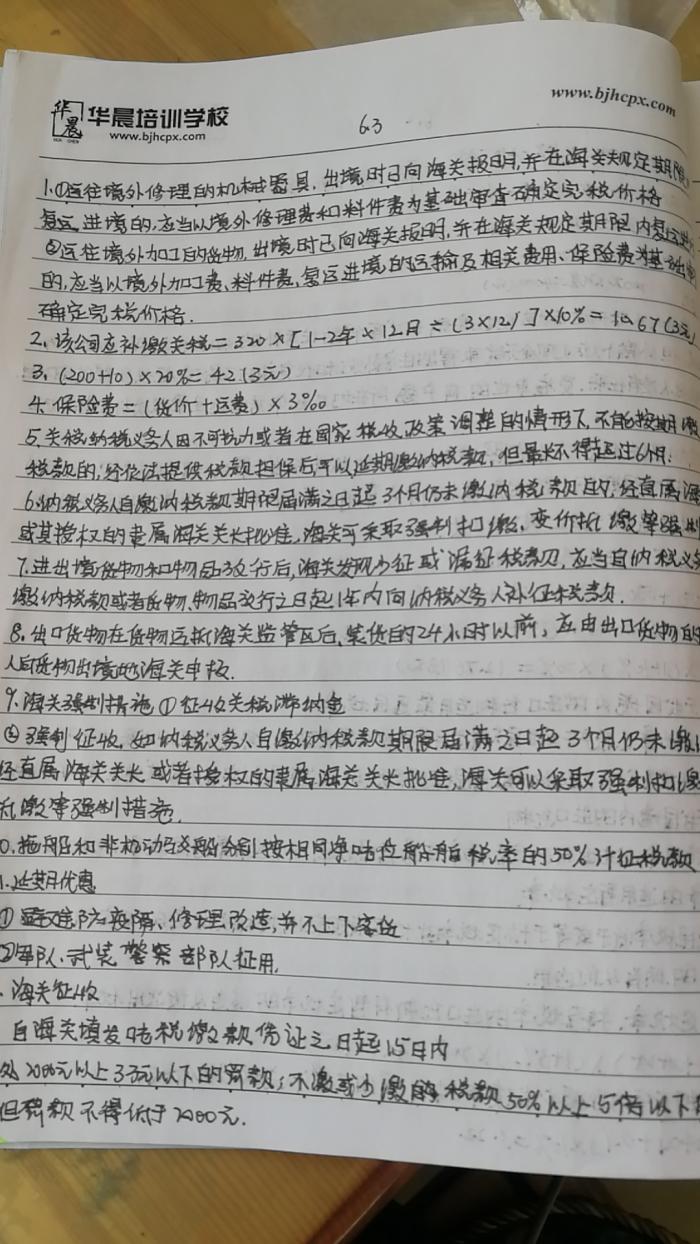 华晨
HUA CHEN
华晨培训学校
www.bjhcpx.com
www.bjhcpx.com
6.3
1.①运往境外修理的机械器具,出境时已向海关报明,并在海关规定期限
复运进境的,应当以境外修理费和料件费为基础审查确定完税价格
②运往境外加工的货物,出境时已向海关报明,并在海关规定期限内复运进
的,应当以境外加工费、料件费、复运进境的运输及相关费用、保险费为基础
确定完税价格.
2、该公司应补缴关税=320×[1-2年×12月÷(3×12)]×10%=10.67(万元)
3、(200+10)×20%=42(万元)
4、保险费=(货价+运费)×3‰
5、关税纳税义务人因不可抗力或者在国家税收政策调整的情形下,不能按期缴
税款的,经依法提供税款担保后可以延期缴纳税款,但最长不得超过6个月.
6、纳税义务人自缴纳税款期限届满之日起3个月仍未缴纳税款的,经直属海
或其授权的隶属海关关长批准,海关可采取强制扣缴、变价抵缴等强制
7、进出境货物和物品放行后,海关发现少征或漏征税款,应当自纳税义务
缴纳税款或者货物、物品放行之日起1年内向纳税义务人补征税款.
8、出口货物在货物运抵海关监管区后,装货的24小时以前,应由出口货物的
人向货物出境地海关申报.
9、海关强制措施①征收关税滞纳金
②强制征收.如纳税义务人自缴纳税款期限届满之日起3个月仍未缴
经直属海关关长或者授权的隶属海关关长批准,海关可以采取强制扣缴
抵缴等强制措施.
0、拖船和非机动驳船分别按相同净吨位船舶税率的50%计征税款
1、延期优惠
①避难、防疫隔离、修理改造,并不上下客货
②军队、武装警察部队征用.
、海关征收
自海关填发吨税缴款凭证之日起15日内
处2000元以上3万元以下的罚款;不缴或少缴的税款50%以上5倍以下
但罚款不得低于2000元.